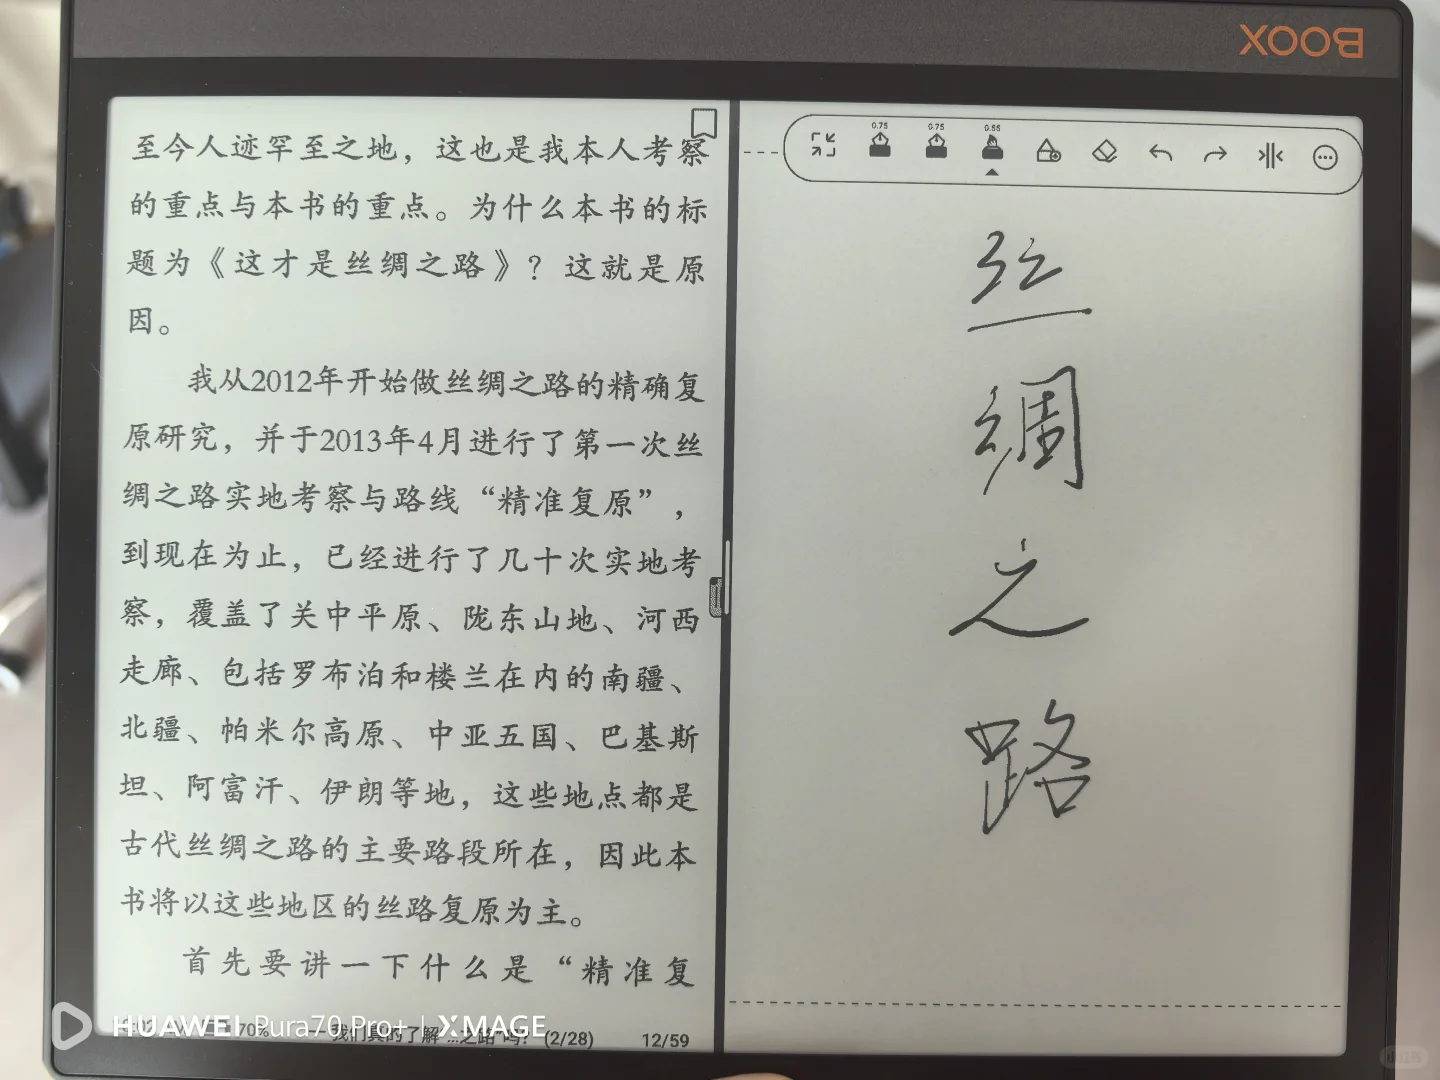 BOOX
至今人迹罕至之地，这也是我本人考察
的重点与本书的重点。为什么本书的标
题为《这才是丝绸之路》？这就是原
因。
我从2012年开始做丝绸之路的精确复
原研究，并于2013年4月进行了第一次丝
绸之路实地考察与路线“精准复原”，
到现在为止，已经进行了几十次实地考
察，覆盖了关中平原、陇东山地、河西
走廊、包括罗布泊和楼兰在内的南疆、
北疆、帕米尔高原、中亚五国、巴基斯
坦、阿富汗、伊朗等地，这些地点都是
古代丝绸之路的主要路段所在，因此本
书将以这些地区的丝路复原为主。
首先要讲一下什么是“精准复
70%
一 我们真的了解“...之路”吗？ (2/28)
12/59
0.75
0.75
0.55
丝
绸
之
路
HUAWEI Pura70 Pro+ | XMAGE
小红书